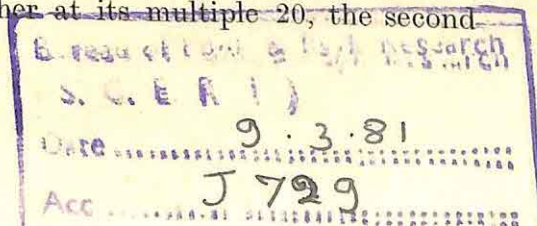 her at its multiple 20, the second
Bureau of & Research
S. C. E R T )
Date ........ 9.3.81 ........
Acc ........ J 729 ........